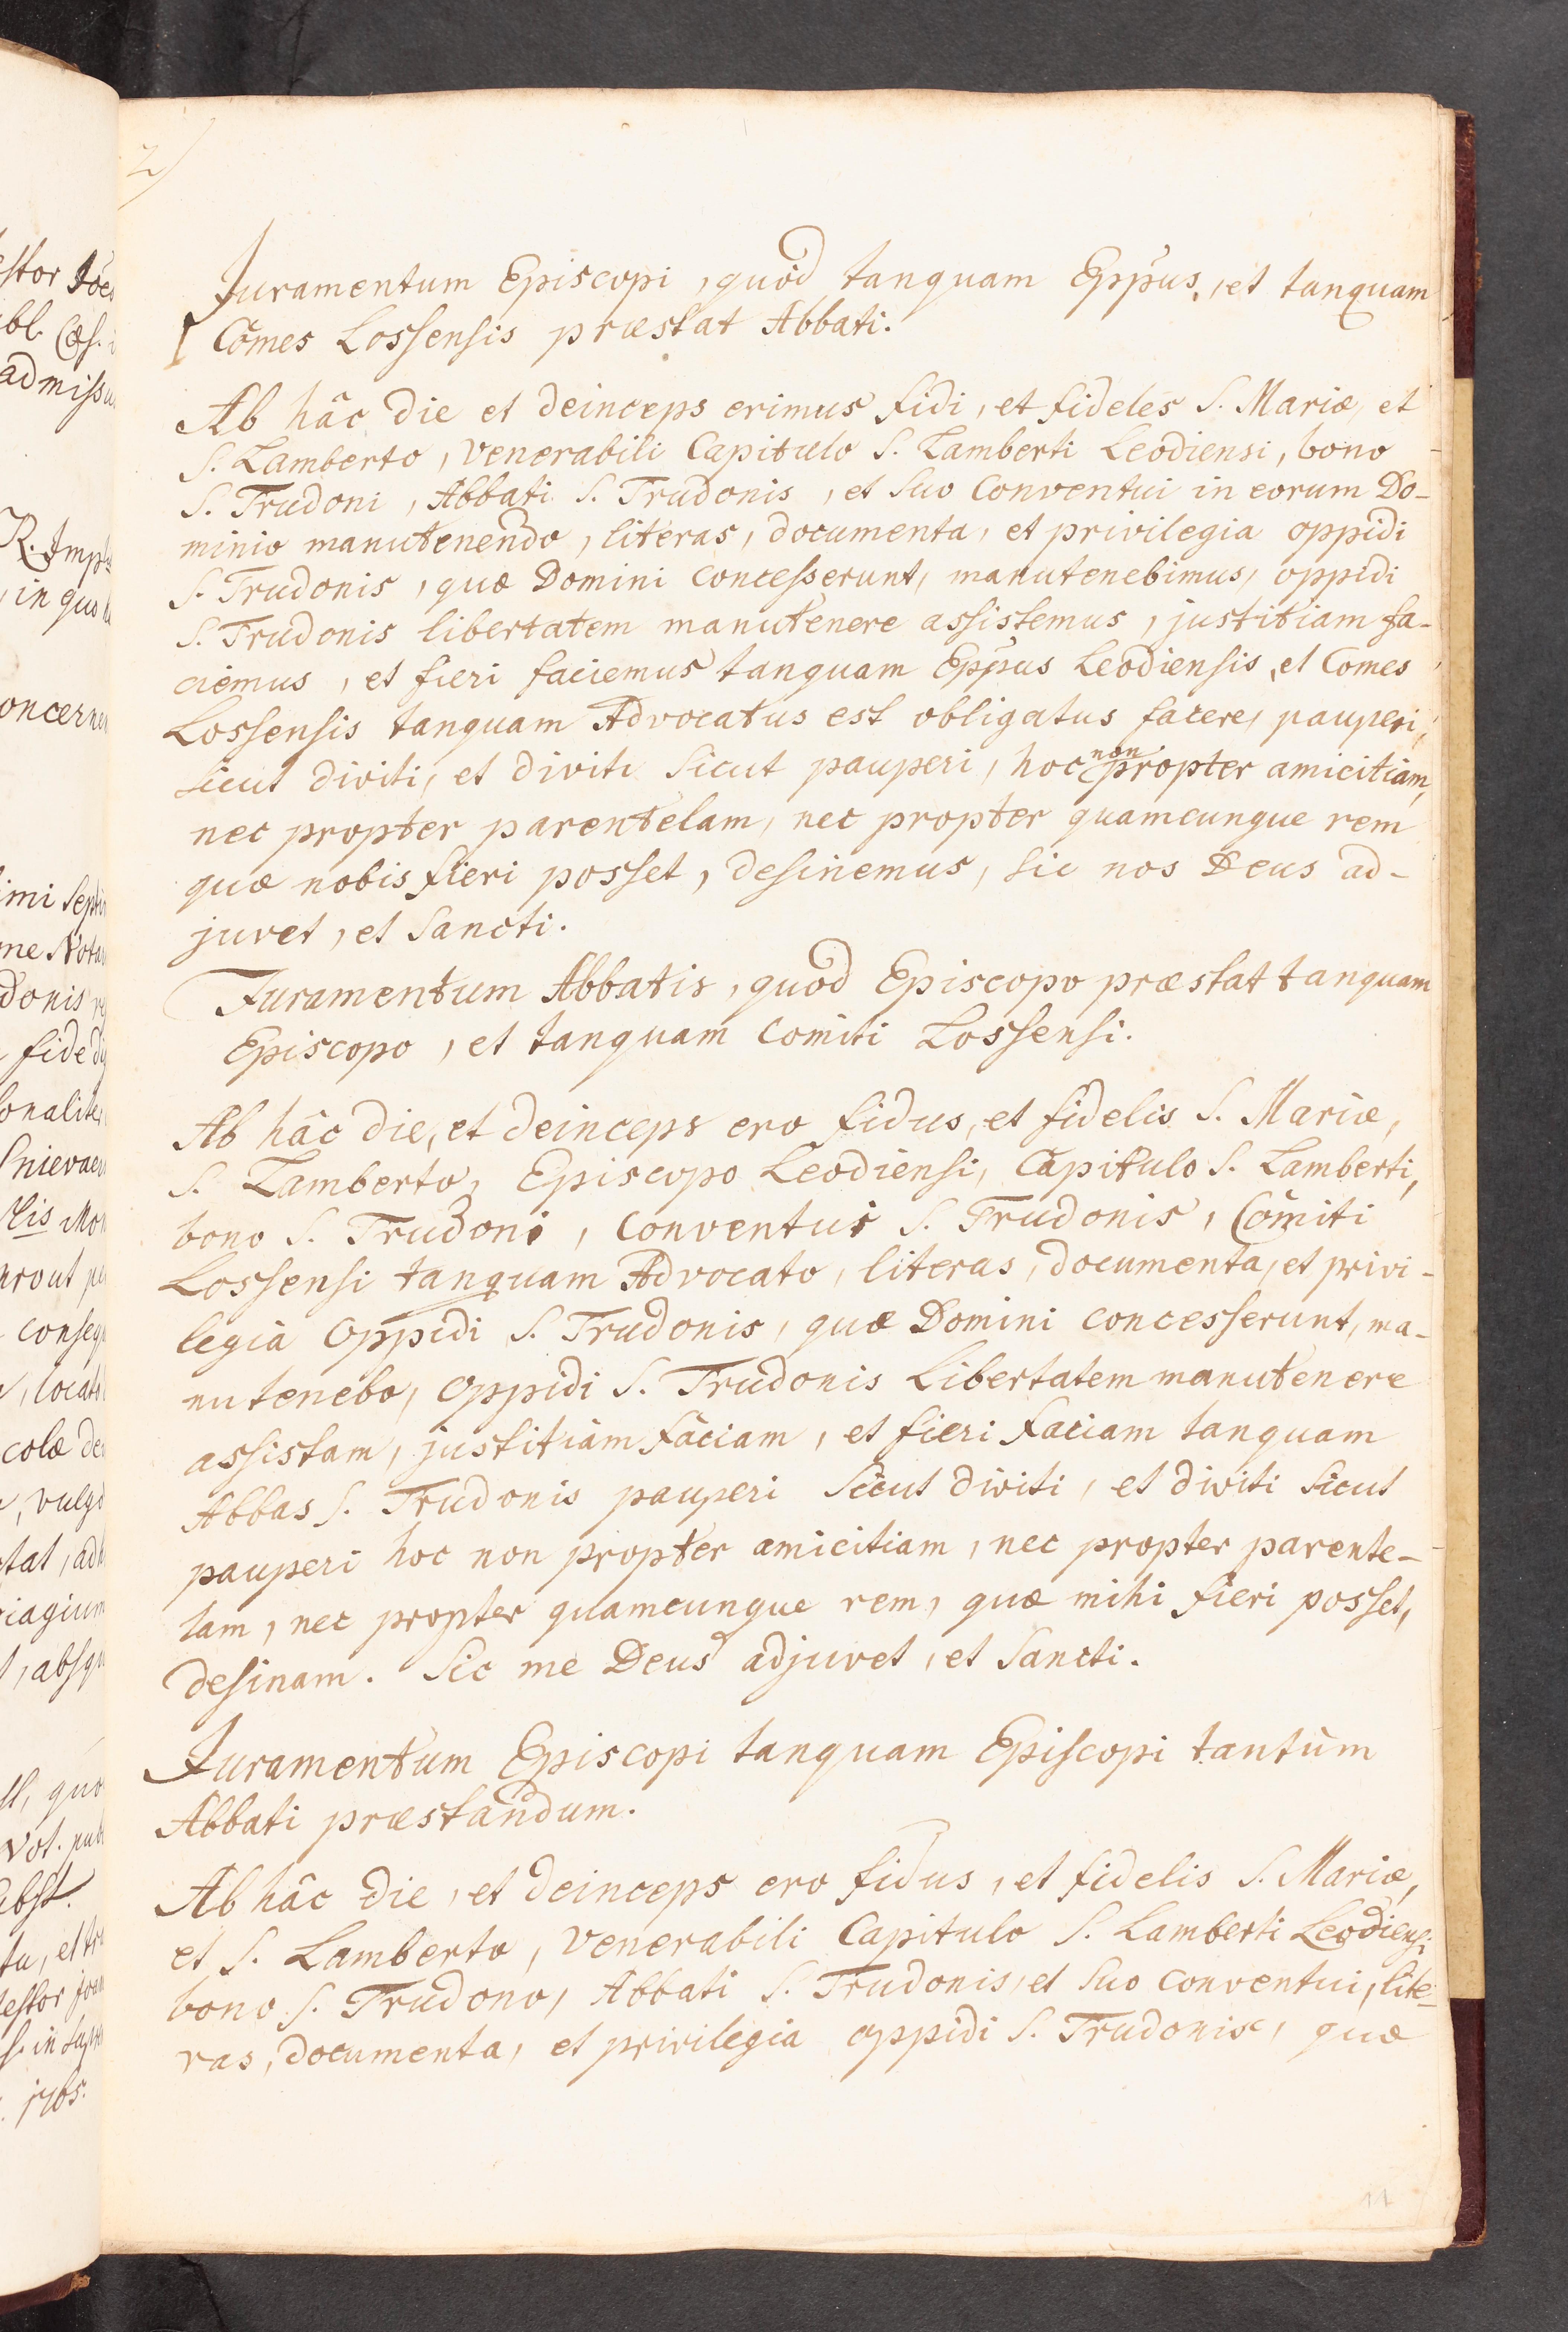 2)
Juramentum Episcopi, quod tanquam Eppus, et tanquam
Comes Lossensis præstat Abbati.
Ab hâc die et deinceps erimus fidi, et fideles S. Mariæ, et
S. Lamberto, venerabili Capitulo S. Lamberti Leodiensi, bono
S. Trudoni, Abbati S. Trudonis, et suo Conventui in eorum Do-
minio manutenendo, literas, documenta, et privilegia oppidi
S. Trudonis, quæ Domini concesserunt, manutenebimus, oppidi
S. Trudonis libertatem manutenere assistemus, justitiam fa-
ciemus, et fieri faciemus tanquam Eppus Leodiensis, et Comes
Lossensis tanquam Advocatus est obligatus facere, pauperi,
sicut diviti, et diviti sicut pauperi, hoc non propter amicitiam,
nec propter parentelam, nec propter quamcunque rem
quæ nobis fieri posset, desinemus, sic nos Deus ad-
juvet, et Sancti.
Juramentum Abbatis, quod Episcopo præstat tanquam
Episcopo, et tanquam Comiti Lossensi.
Ab hâc die, et deinceps ero fidus, et fidelis S. Mariæ,
S. Lamberto, Episcopo Leodiensi, Capitulo S. Lamberti,
bono S. Trudoni, Conventui S. Trudonis, Comiti
Lossensi tanquam Advocato, literas, documenta, et privi-
legia Oppidi S. Trudonis, quæ Domini concesserunt, ma-
nutenebo, oppidi S. Trudonis Libertatem manutenere
assistam, justitiam faciam, et fieri faciam tanquam
Abbas S. Trudonis pauperi sicut diviti, et diviti sicut
pauperi hoc non propter amicitiam, nec propter parente-
lam, nec propter quamcunque rem, quæ mihi fieri posset,
desinam. Sic me Deus adjuvet, et Sancti.
Juramentum Episcopi tanquam Episcopi tantùm
Abbati præstandum.
Ab hâc die, et deinceps ero fidus, et fidelis S. Mariæ,
et S. Lamberto, venerabili Capitulo S. Lamberti Leodiensi
bono S. Trudono, Abbati S. Trudonis, et suo conventui, lite-
ras, documenta, et privilegia oppidi S. Trudonis, quæ
11